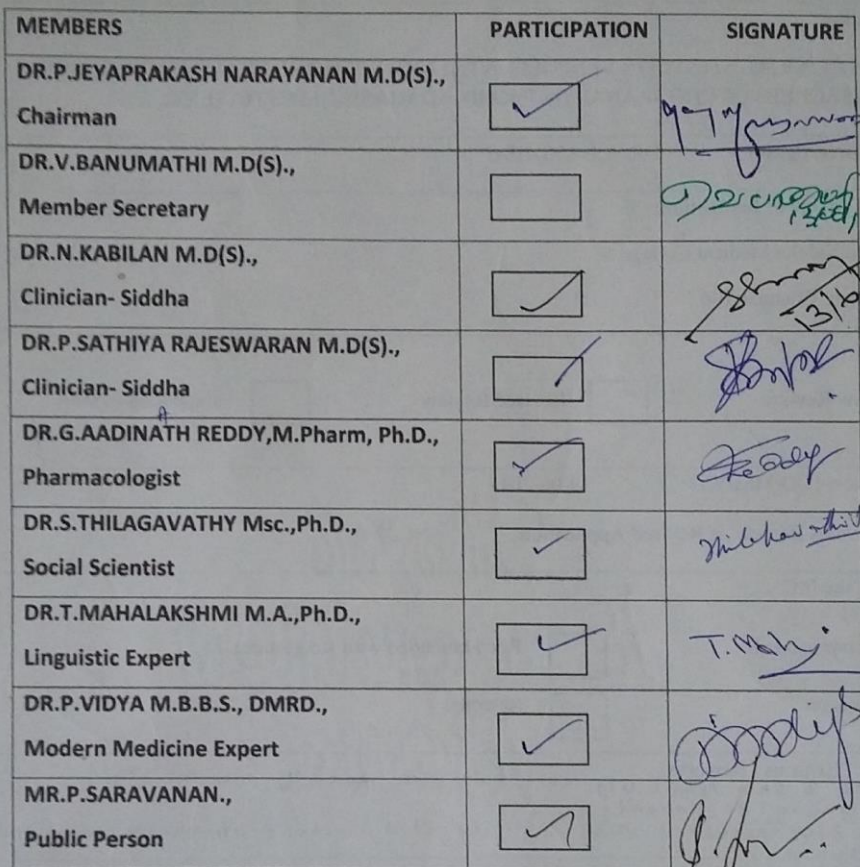 MEMBERS PARTICIPATION SIGNATURE
DR.P.JEYAPRAKASH NARAYANAN M.D(S).,
Chairman
DR.V.BANUMATHI M.D(S).,
Member Secretary
DR.N.KABILAN M.D(S).,
Clinician- Siddha
13/6
DR.P.SATHIYA RAJESWARAN M.D(S).,
Clinician- Siddha
A
DR.G.AADINATH REDDY,M.Pharm, Ph.D.,
Pharmacologist
DR.S.THILAGAVATHY Msc.,Ph.D.,
Social Scientist
DR.T.MAHALAKSHMI M.A.,Ph.D.,
Linguistic Expert
DR.P.VIDYA M.B.B.S., DMRD.,
Modern Medicine Expert
MR.P.SARAVANAN.,
Public Person